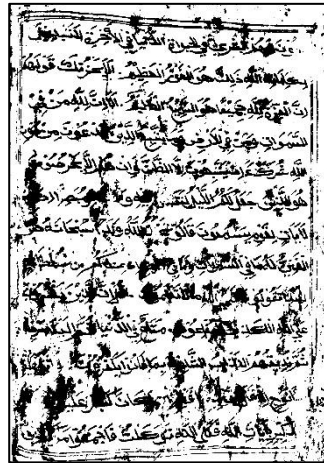 ون لهم البشرى في الحيوة الدنيا وفي الاخرة لا تبديل
لكلمات الله ذلك هو الفوز العظيم ولا يحزنك قولهم
ان العزة لله جميعا هو السميع العليم الا ان لله من في
السموات ومن في الارض وما يتبع الذين يدعون من دون
الله شركاء ان يتبعون الا الظن وان هم الا يخرصون
هو الذي جعل لكم الليل لتسكنوا مبصرا ان في
لايات لقوم يسمعون قالوا الله ولدا سبحانه هو
الغني له ما في السموات وما في عندكم من سلطان
بهذا اتقولون على الله ما لا تعلمون ان الذين يفترون
على الله الكذب لا يفلحون متاع في الدنيا ثم الينا مرجعهم
ثم نذيقهم العذاب الشديد بما كانوا يكفرون
نوح اذ قال لقومه ان كان كبر عليكم
بايات الله فعلى الله توكلت فاجمعوا امركم